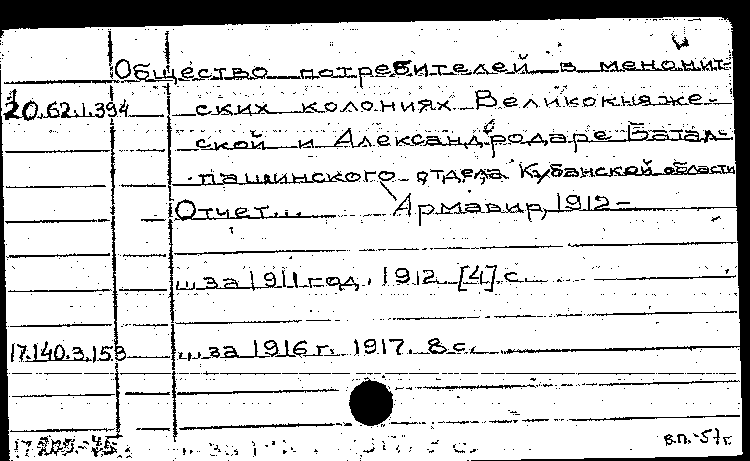 Общество потребителей в менонит-
20.62.1.394 ских колониях Великокняже-
ской и Александродаре Батал-
пашинского отдела Кубанской области
Отчет... Армавир, 1912-
... за 1911 год. 1912. [4] с.
17.140.3.153 ... за 1916 г. 1917. 8 с.
в.п.-57г.